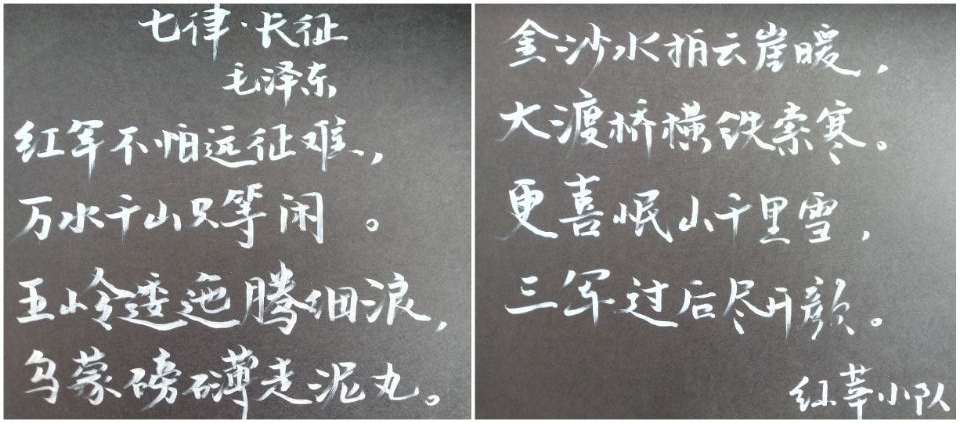 七律·长征
毛泽东
红军不怕远征难，
万水千山只等闲。
五岭逶迤腾细浪，
乌蒙磅礴走泥丸。
金沙水拍云崖暖，
大渡桥横铁索寒。
更喜岷山千里雪，
三军过后尽开颜。
红莘小队